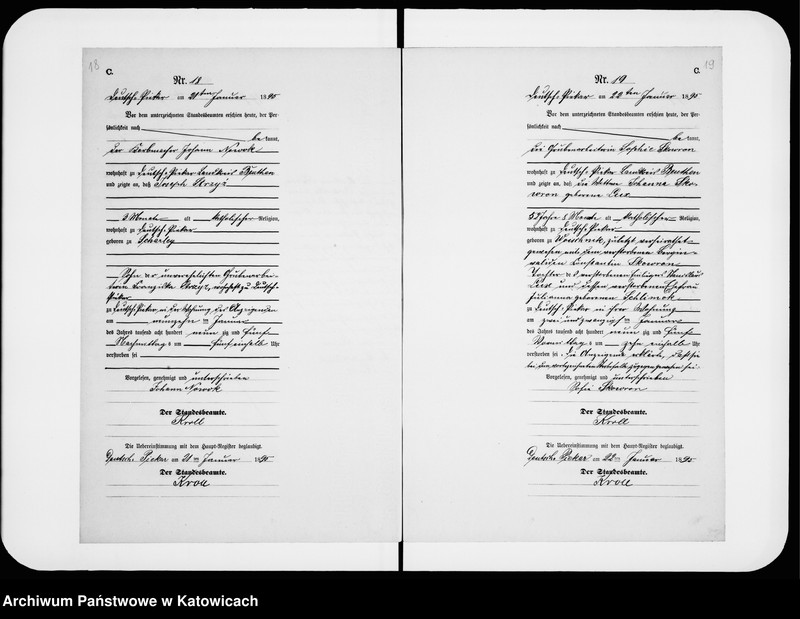 18
C.
Nr. 18
Deutsch Piekar am 21ten Januar 1895
Vor dem unterzeichneten Standesbeamten erschien heute, der Per-
sönlichkeit nach
be kannt,
der Johann Nowok
wohnhaft zu Deutsch Piekar Landkreis Beuthen
und zeigte an, daß Joseph
3 Monate alt katholischer Religion,
wohnhaft zu Deutsch Piekar
geboren zu Scharley
Sohn der unverehelichten
wohnhaft zu Deutsch-
Piekar
zu Deutsch Piekar in der Wohnung des Anzeigenden
am neunzehn ten Januar
des Jahres tausend acht hundert neun zig und fünf
Nachmittags um fünf einhalb Uhr
verstorben sei
Vorgelesen, genehmigt und unterschrieben
Johann Nowok
Der Standesbeamte.
Kroll
Die Uebereinstimmung mit dem Haupt-Register beglaubigt.
Deutsch Piekar am 21ten Januar 1895
Der Standesbeamte.
Kroll
19
C.
Nr. 19
Deutsch Piekar am 22ten Januar 1895
Vor dem unterzeichneten Standesbeamten erschien heute, der Per-
sönlichkeit nach
be kannt,
die Grubenarbeiterin Sophie Skowron
wohnhaft zu Deutsch Piekar Landkreis Beuthen
und zeigte an, daß die Wittwe Johanna Sko-
wron geborene
57 Jahre 8 Monate alt katholischer Religion,
wohnhaft zu Deutsch Piekar
geboren zu zuletzt verheirathet
gewesen mit dem verstorbenen Berginva-
liden Constantin Skowron
Tochter des verstorbenen
und dessen verstorbenen Ehefrau
Julianna geborenen
zu Deutsch Piekar in ihrer Wohnung
am zwei und zwanzigsten Januar
des Jahres tausend acht hundert neun zig und fünf
Vormittags um zehn einhalb Uhr
verstorben sei. Die Anzeigende erklärte, daß sie
bei dem vorbezeichneten Sterbefalle zugegen gewesen sei.
Vorgelesen, genehmigt und unterschrieben
Sofie Skowron
Der Standesbeamte.
Kroll
Die Uebereinstimmung mit dem Haupt-Register beglaubigt.
Deutsch Piekar am 22ten Januar 1895
Der Standesbeamte.
Kroll
Archiwum Państwowe w Katowicach